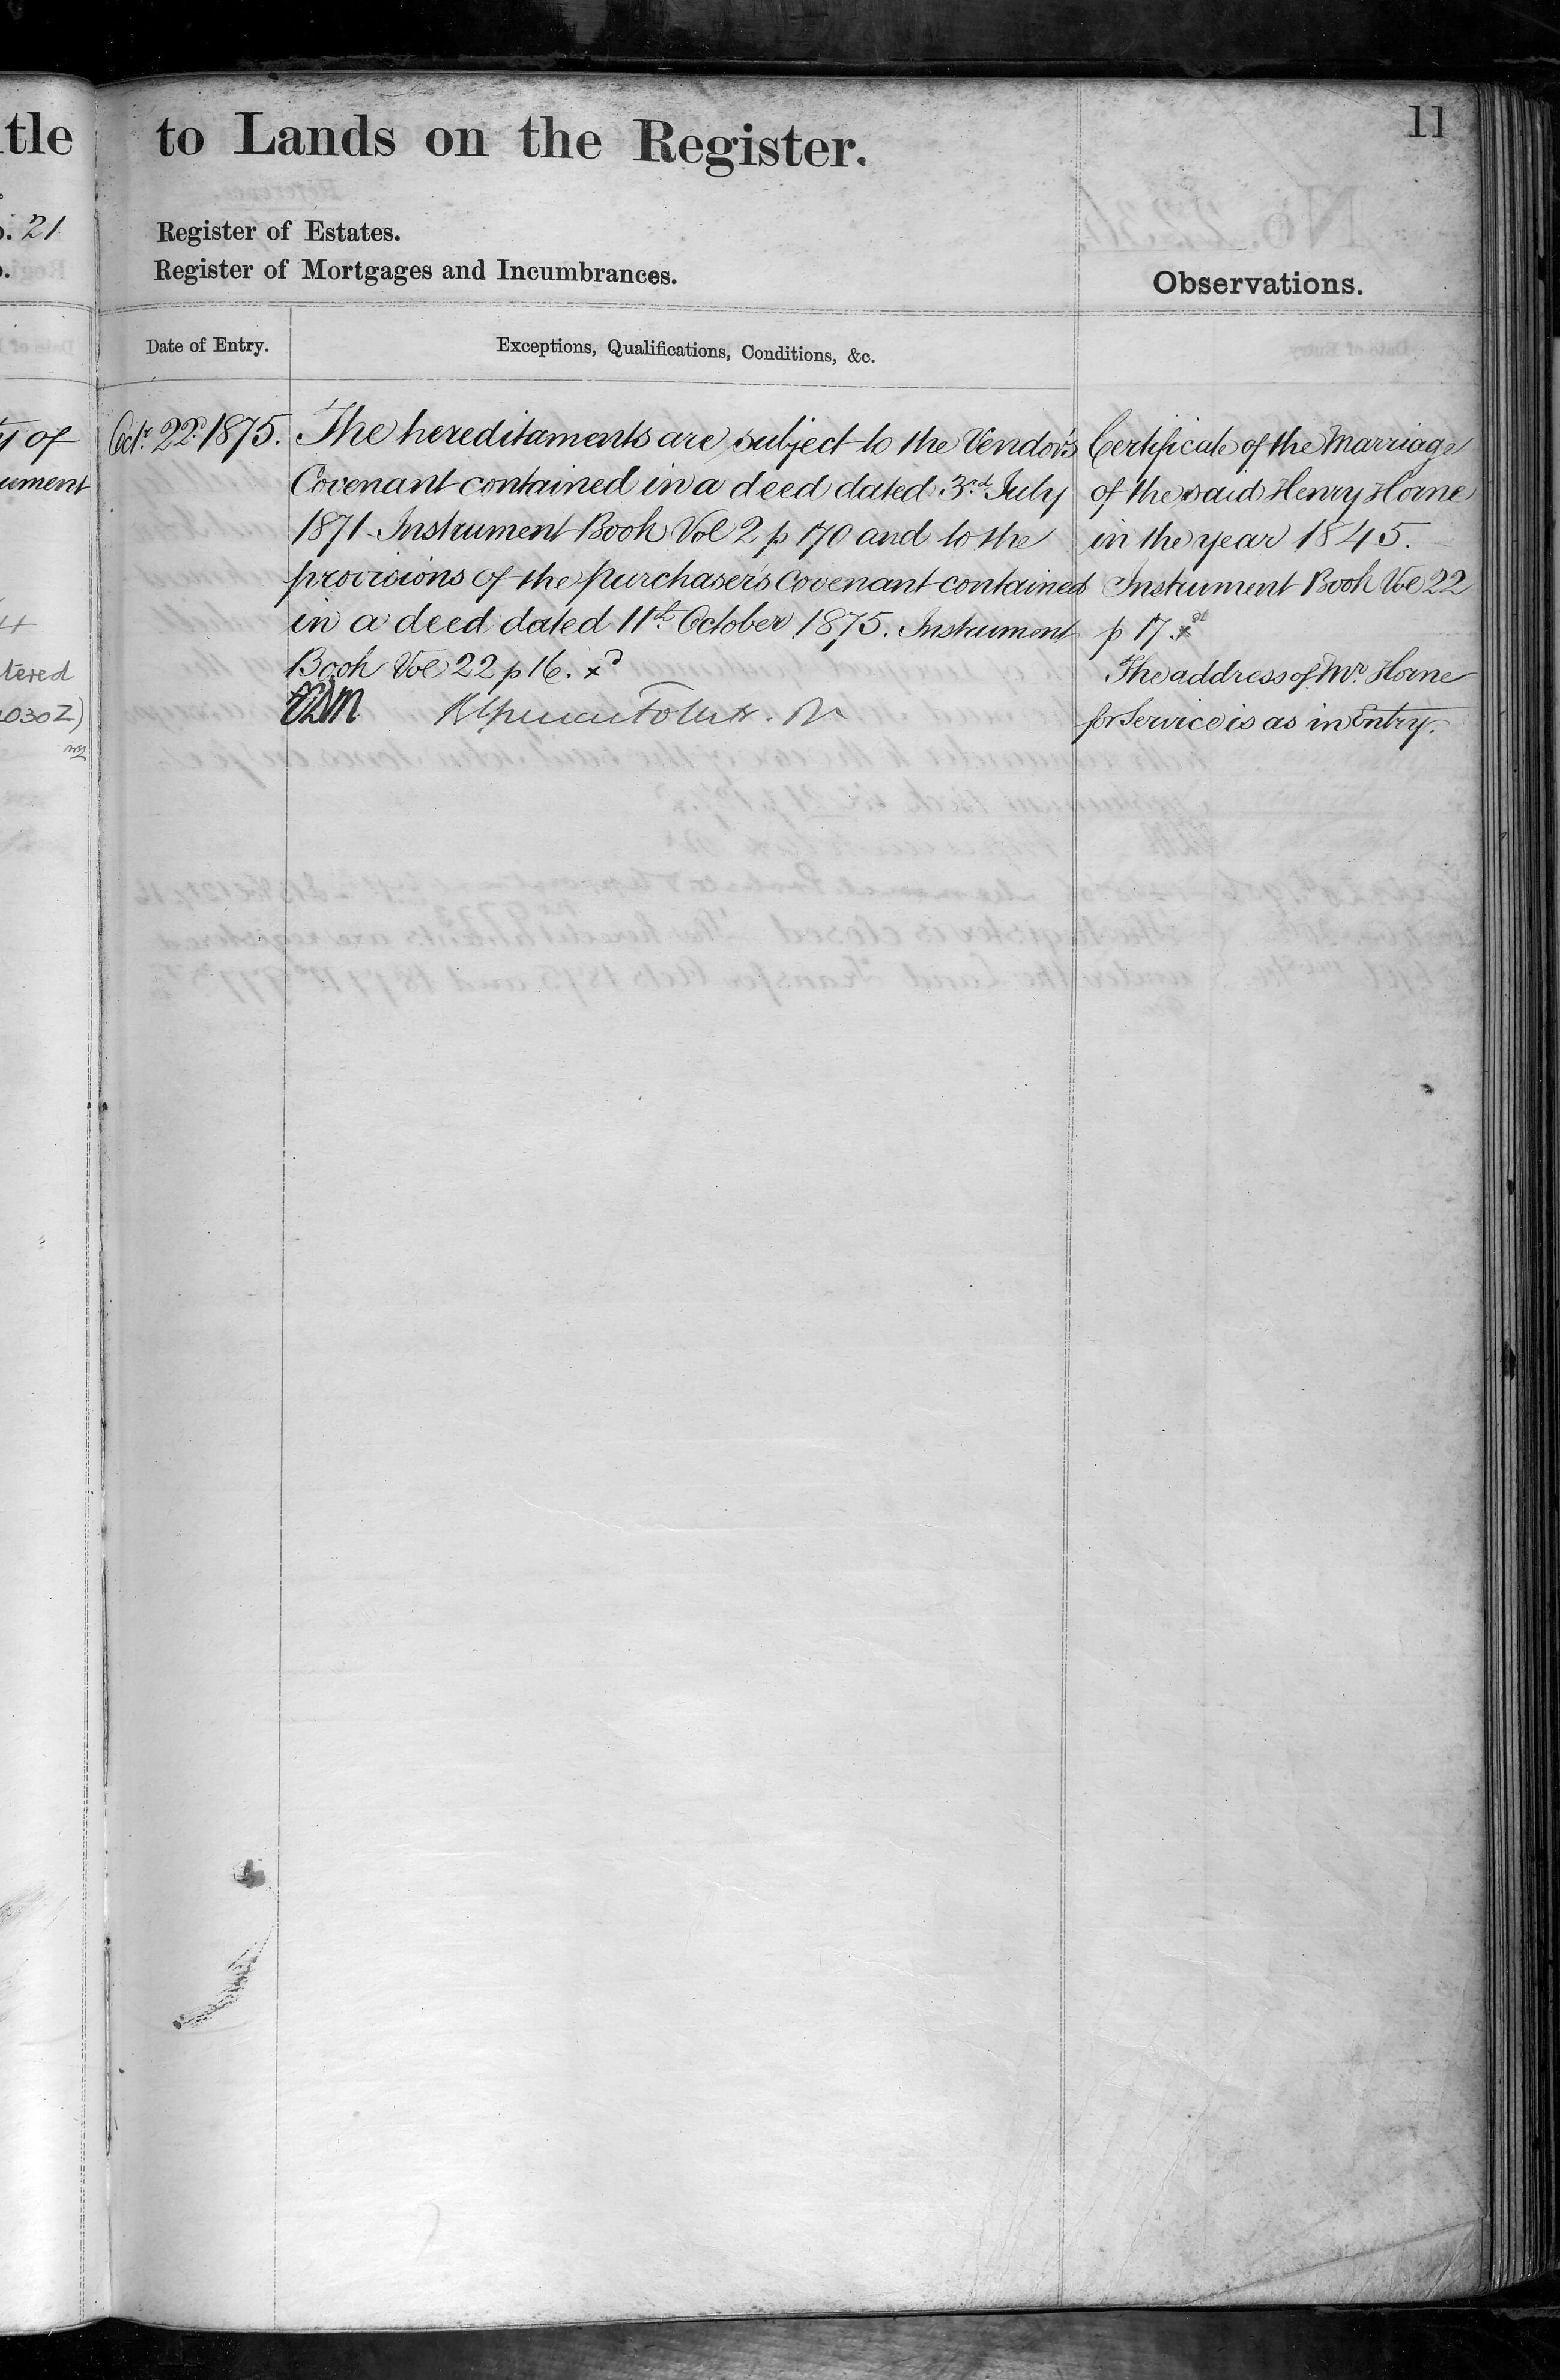 tle to Lands on the Register. 11
. 21 Register of Estates.
Register of Mortgages and Incumbrances.
Observations.
Date of Entry. Exceptions, Qualifications, Conditions, &c.
of
ument
tered
Octr. 22d. 1875. The hereditaments are subject to the Vendor's
Covenant contained in a deed dated 3rd July
1871 Instrument Book Vol 2 p 170 and to the
provisions of the purchaser's Covenant contained
in a deed dated 11th October 1875. Instrument
Book Vol 22 p 16. xd
Certificate of the Marriage
of the said Henry Horne
in the year 1845.
Instrument Book Vol 22
p 17
The address of Mr. Horne
for Service is as in Entry.